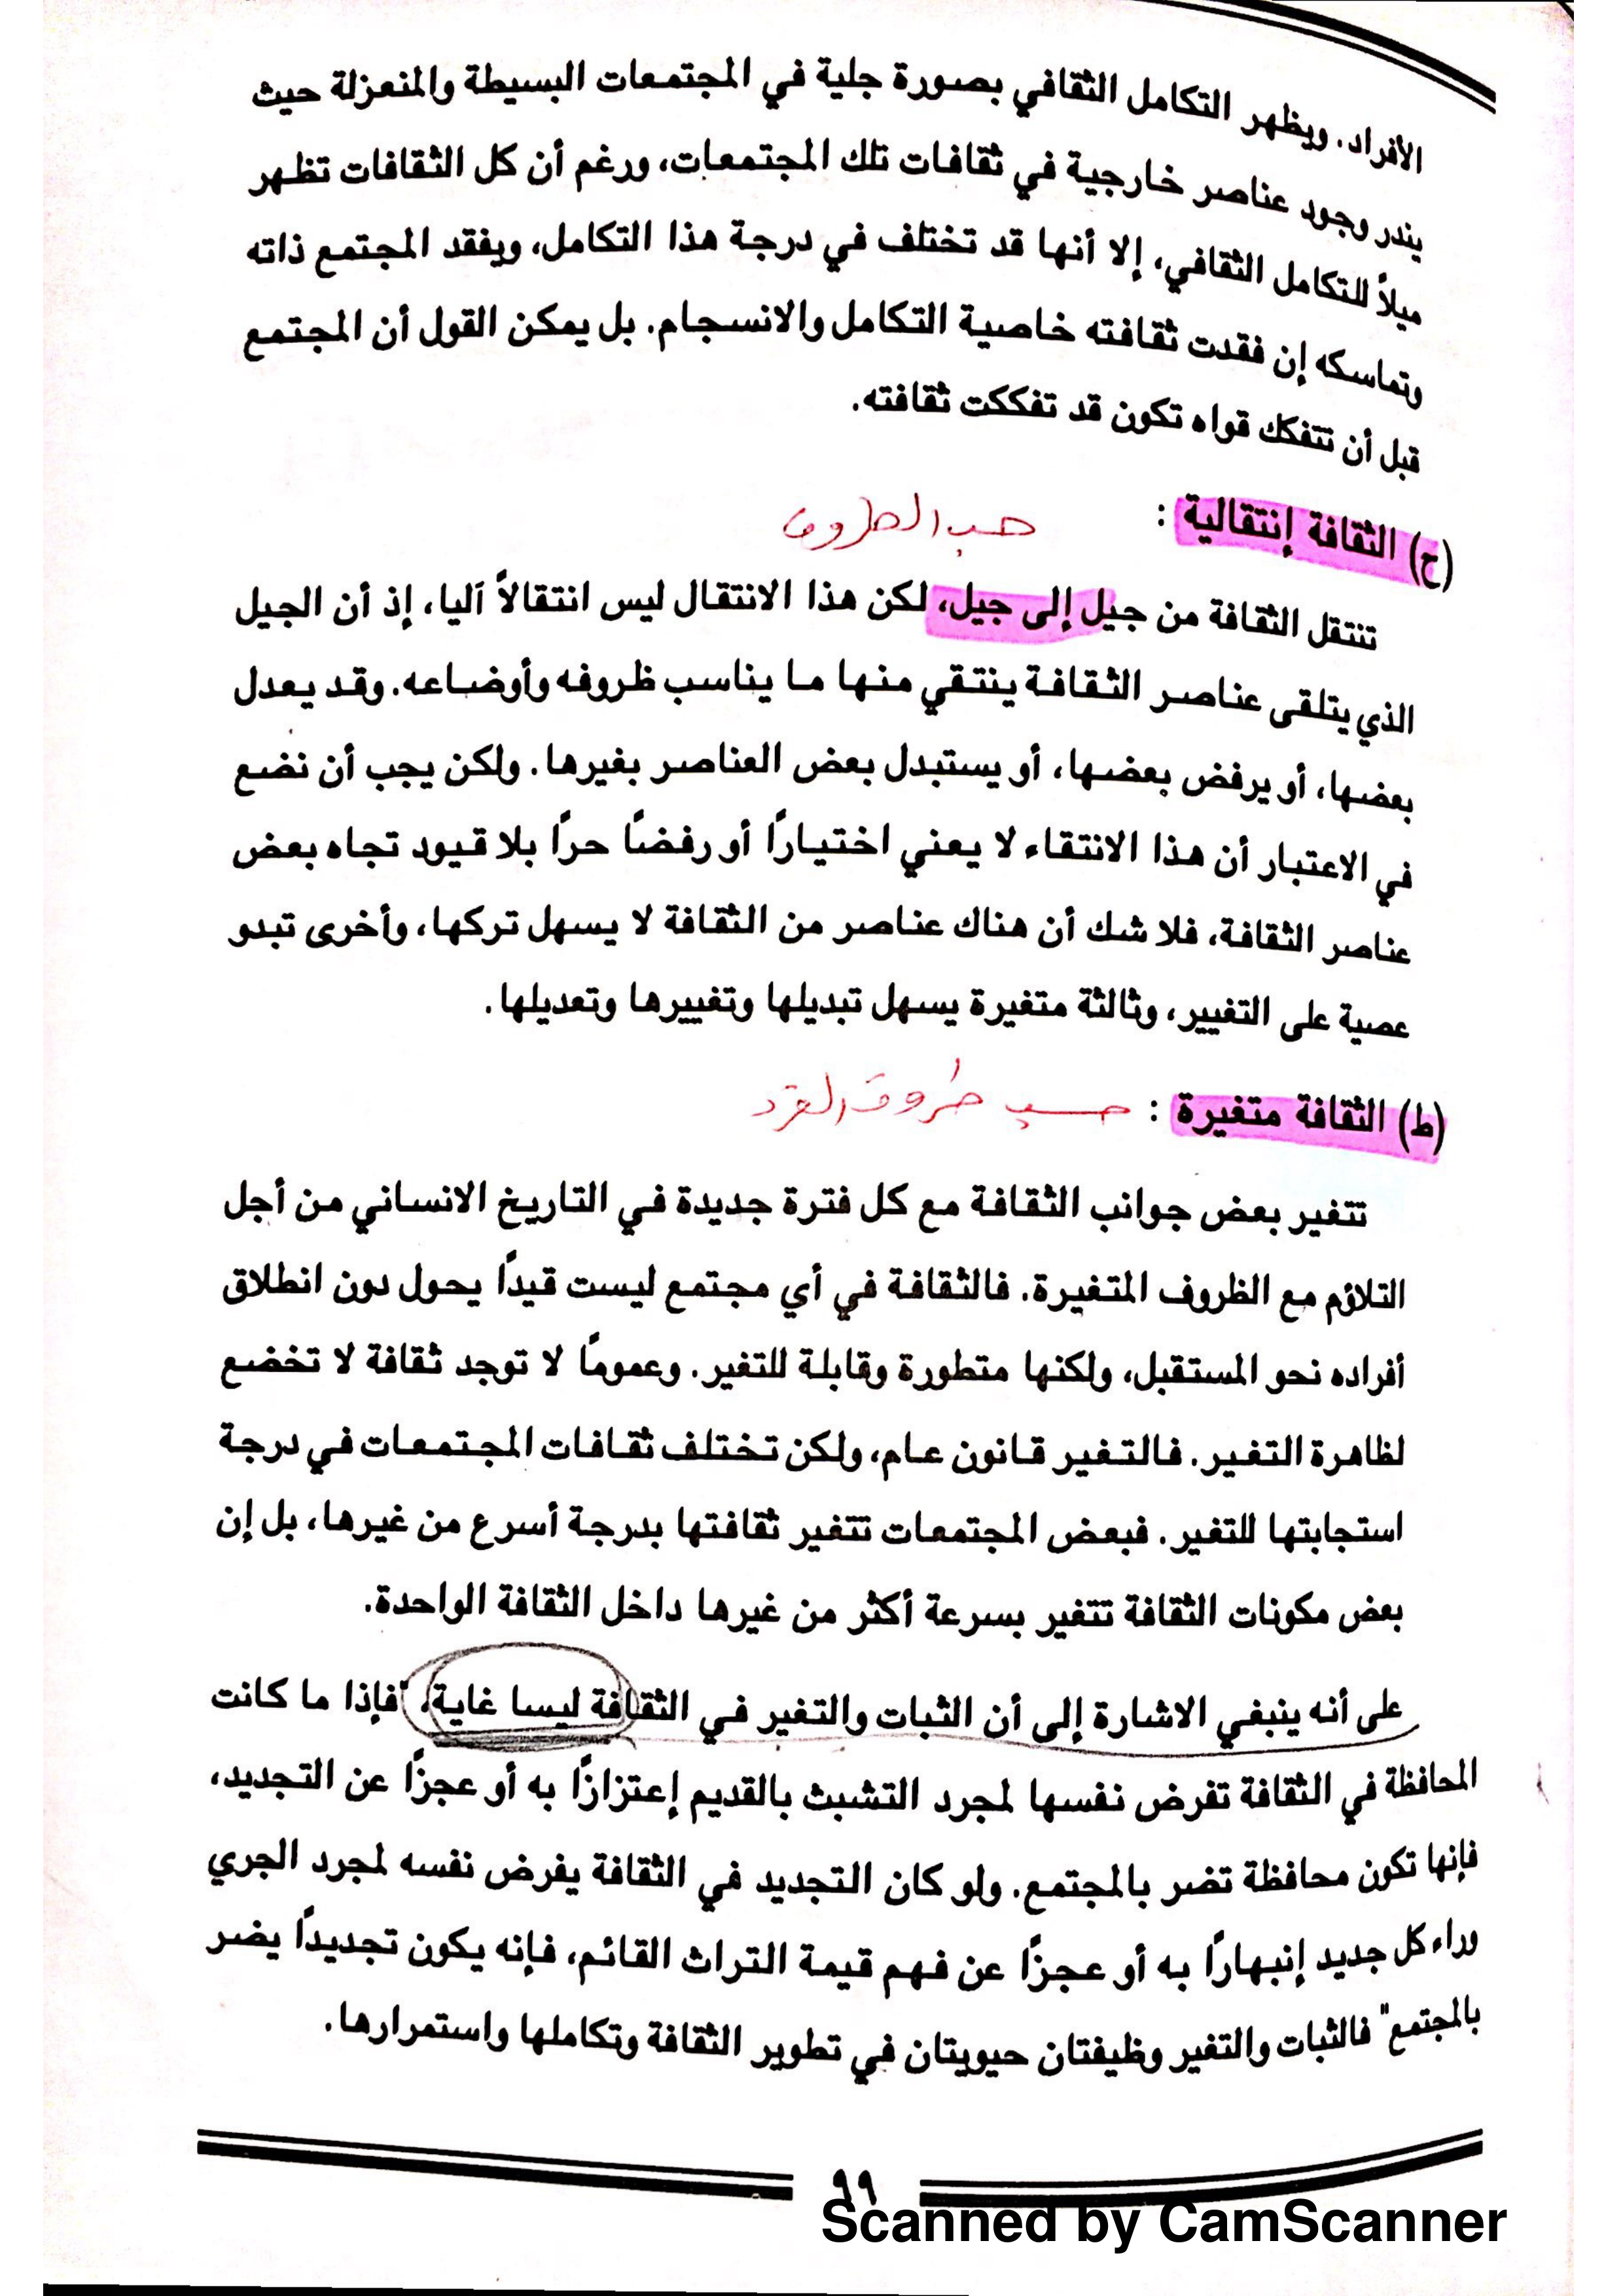 الأفراد. ويظهر التكامل الثقافي بصورة جلية في المجتمعات البسيطة والمنعزلة حيث
يندر وجود عناصر خارجية في ثقافات تلك المجتمعات، ورغم أن كل الثقافات تظهر
ميلاً للتكامل الثقافي، إلا أنها قد تختلف في درجة هذا التكامل، ويفقد المجتمع ذاته
وتماسكه إن فقدت ثقافته خاصية التكامل والانسجام. بل يمكن القول أن المجتمع
قبل أن تتفكك قواه تكون قد تفككت ثقافته.
(ح) الثقافة إنتقالية : حسب الظروف
تنتقل الثقافة من جيل إلى جيل، لكن هذا الانتقال ليس انتقالاً آليا، إذ أن الجيل
الذي يتلقى عناصر الثقافة ينتقي منها ما يناسب ظروفه وأوضاعه. وقد يعدل
بعضها، أو يرفض بعضها، أو يستبدل بعض العناصر بغيرها. ولكن يجب أن نضع
في الاعتبار أن هذا الانتقاء لا يعني اختيارًا أو رفضًا حرًا بلا قيود تجاه بعض
عناصر الثقافة، فلا شك أن هناك عناصر من الثقافة لا يسهل تركها، وأخرى تبدو
عصية على التغيير، وثالثة متغيرة يسهل تبديلها وتغييرها وتعديلها.
(ط) الثقافة متغيرة : حسب ظروف الفرد
تتغير بعض جوانب الثقافة مع كل فترة جديدة في التاريخ الانساني من أجل
التلاؤم مع الظروف المتغيرة. فالثقافة في أي مجتمع ليست قيدًا يحول دون انطلاق
أفراده نحو المستقبل، ولكنها متطورة وقابلة للتغير. وعمومًا لا توجد ثقافة لا تخضع
لظاهرة التغير. فالتغير قانون عام، ولكن تختلف ثقافات المجتمعات في درجة
استجابتها للتغير. فبعض المجتمعات تتغير ثقافتها بدرجة أسرع من غيرها، بل إن
بعض مكونات الثقافة تتغير بسرعة أكثر من غيرها داخل الثقافة الواحدة.
على أنه ينبغي الاشارة إلى أن الثبات والتغير في الثقافة ليسا غاية، "فإذا ما كانت
المحافظة في الثقافة تفرض نفسها لمجرد التشبث بالقديم إعتزازًا به أو عجزًا عن التجديد،
فإنها تكون محافظة تضر بالمجتمع. ولو كان التجديد في الثقافة يفرض نفسه لمجرد الجري
وراء كل جديد إنبهارًا به أو عجزًا عن فهم قيمة التراث القائم، فإنه يكون تجديدًا يضر
بالمجتمع" فالثبات والتغير وظيفتان حيويتان في تطوير الثقافة وتكاملها واستمرارها.
٩٩
Scanned by CamScanner